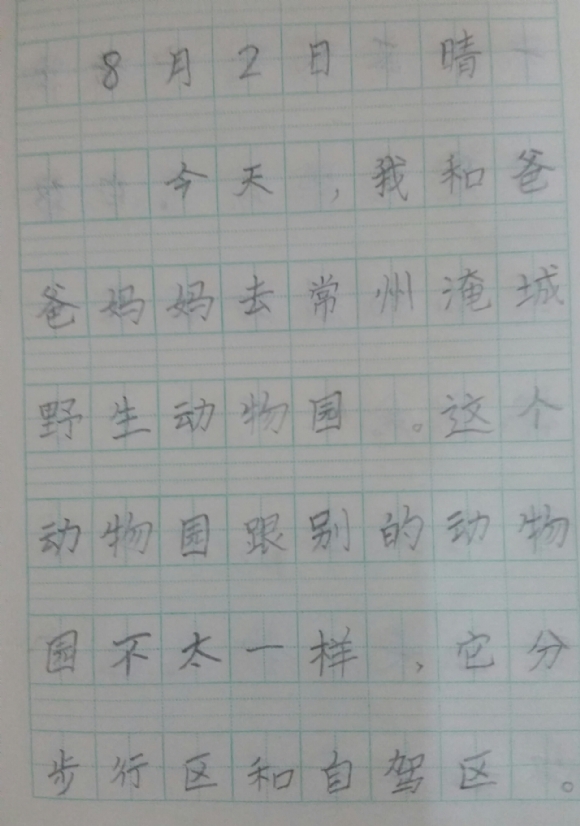 8月2日 晴
今天,我和爸
爸妈妈去常州淹城
野生动物园。这个
动物园跟别的动物
园不太一样,它分
步行区和自驾区。